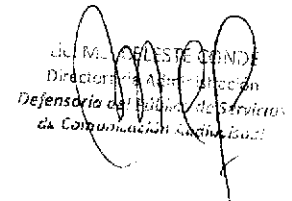 CELESTE CONDE
Directora de Administración
Defensoría del Público de Servicios
de Comunicación Audiovisual